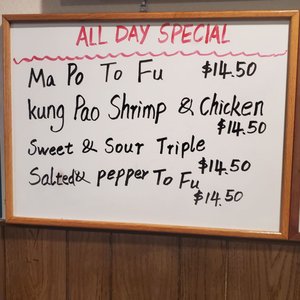 ALL DAY SPECIAL
Ma Po To Fu $14.50
kung Pao Shrimp & Chicken
$14.50
Sweet & Sour Triple
$14.50
Salted& pepper To Fu
$14.50